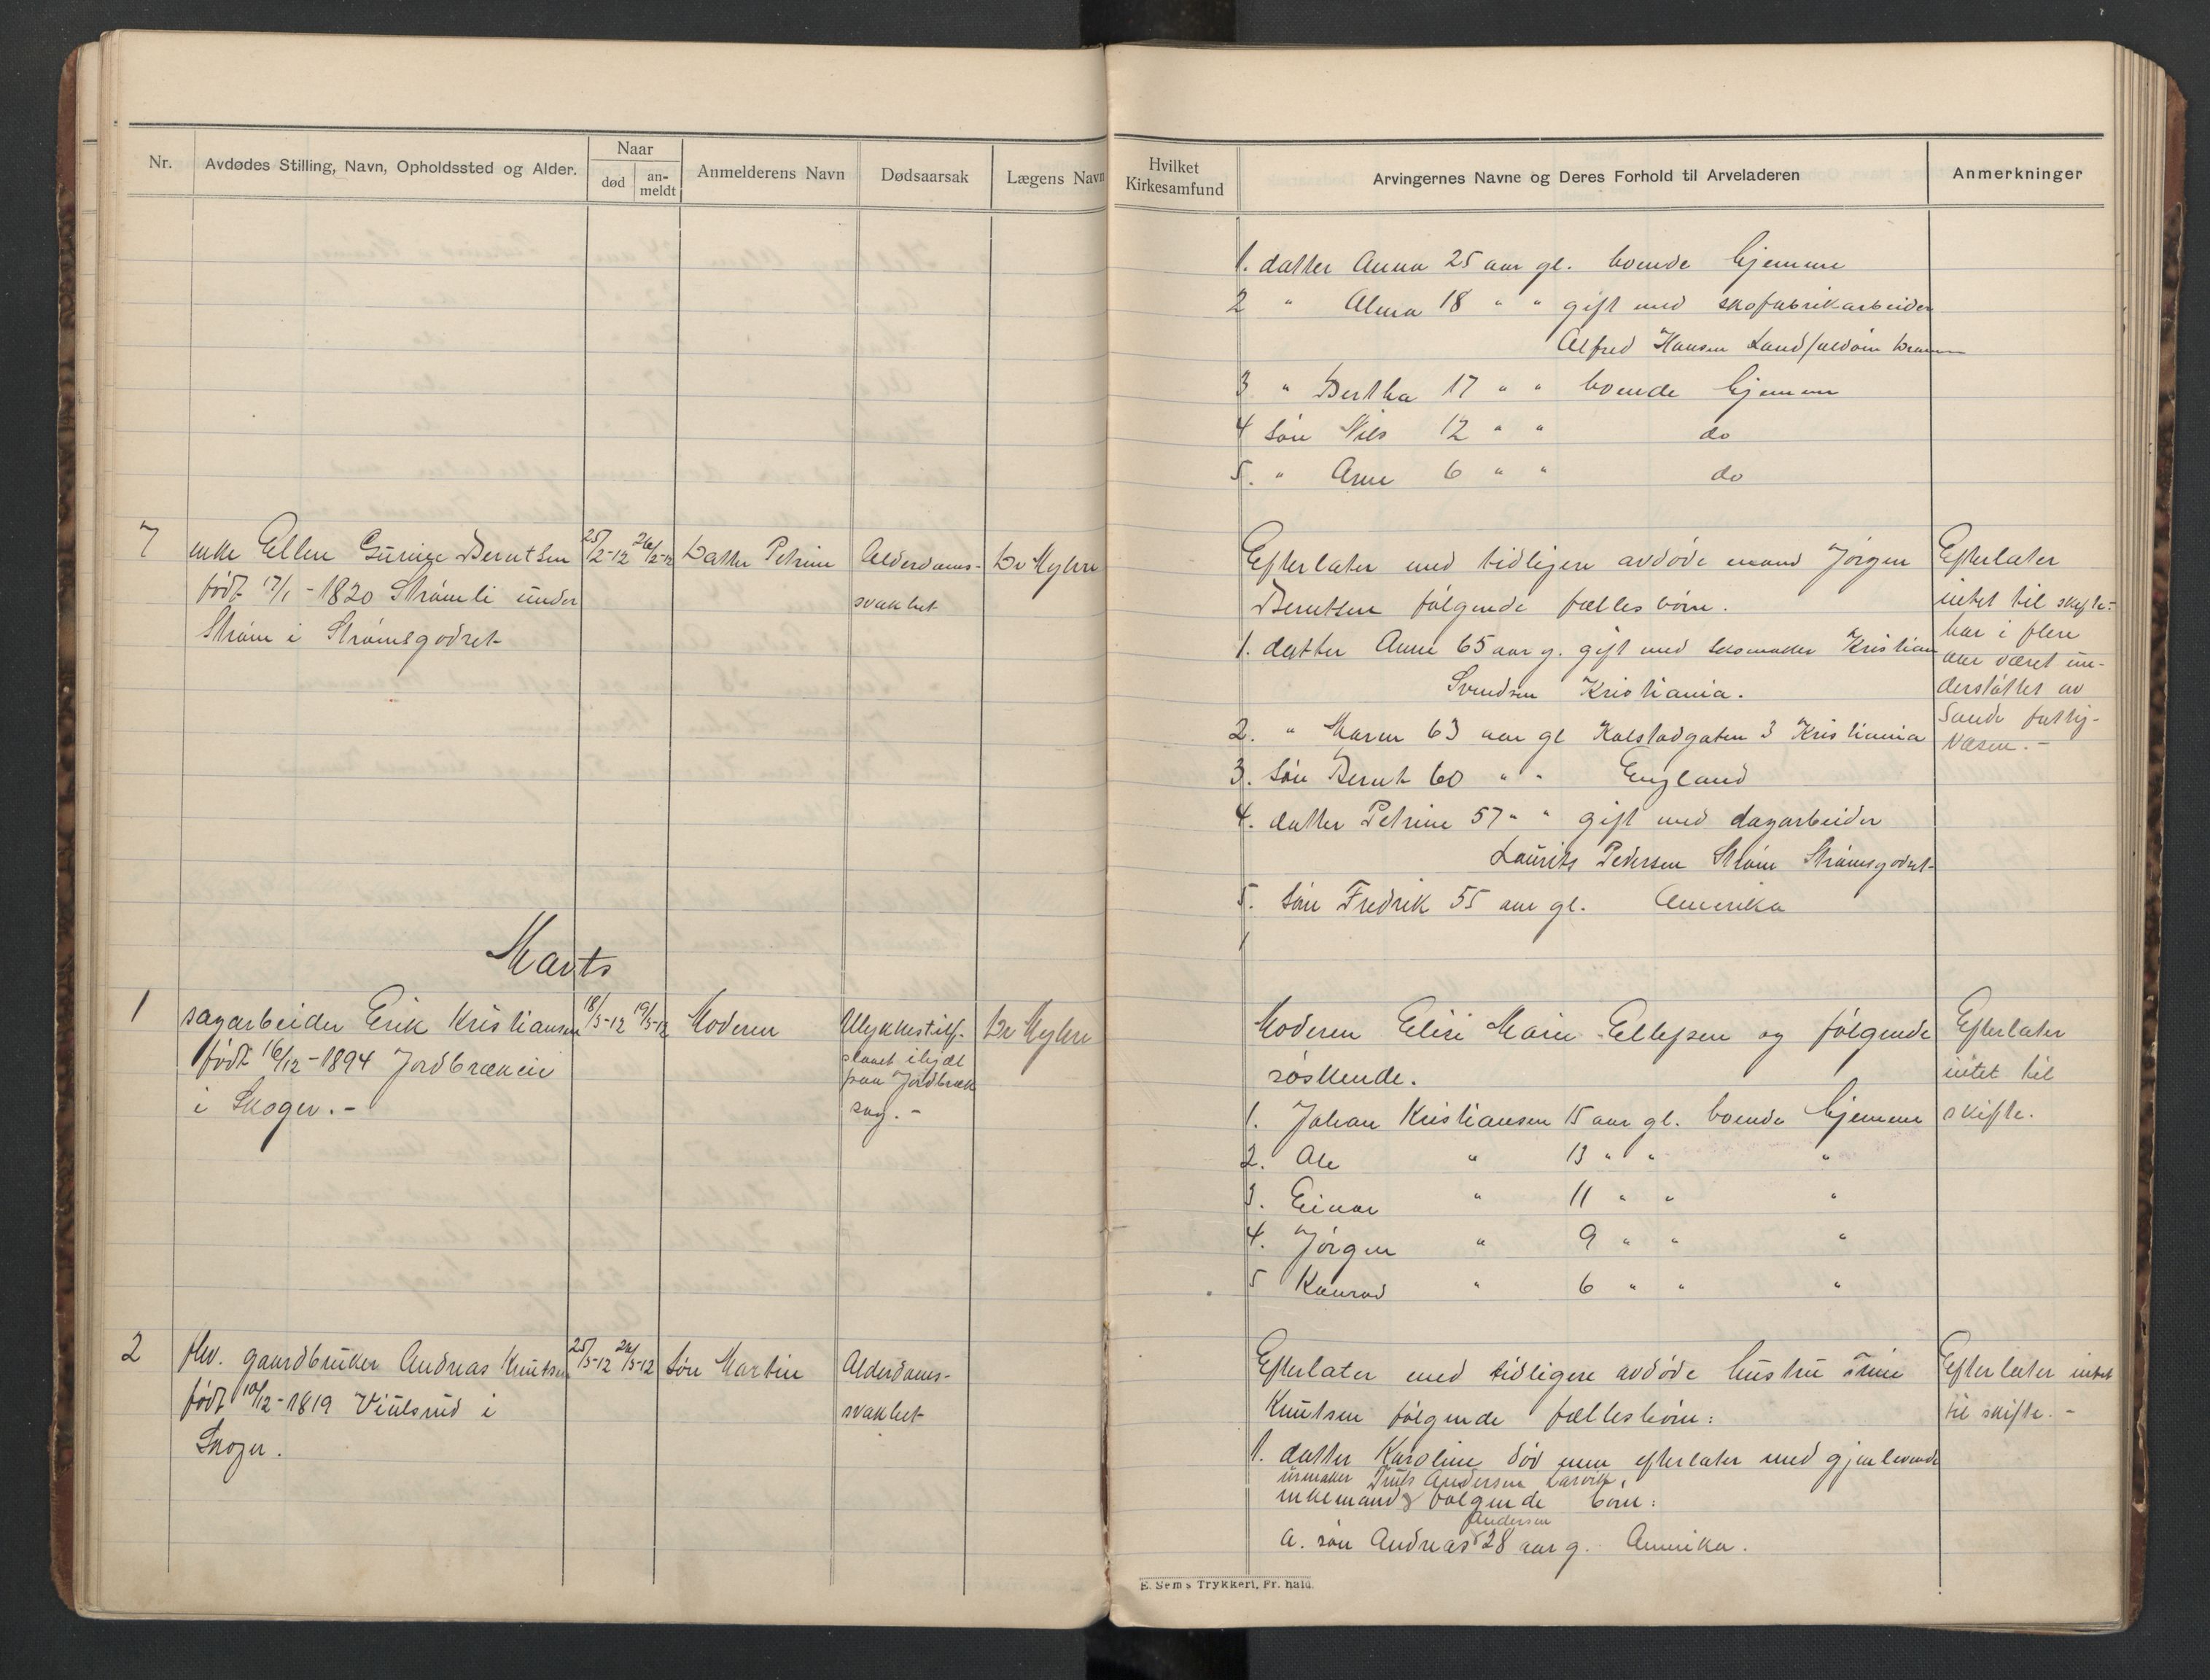 Nr.
Avdødes Stilling, Navn, Opholdssted og Alder.
Naar
død
an-
meldt
Anmelderens Navn
Dødsaarsak
Lægens Navn
Hvilket
Kirkesamfund
Arvingernes Navne og Deres Forhold til Arveladeren
Anmerkninger
1. datter Anna 25 aar gl. boende hjemme
2 " Alma 18 " " gift med skofabrikarbeider
Alfred Hansen Landfaldøin
3 " Bertha 17 " " boende hjemme
4 søn Nils 12 " " do
5. " Arne 6 " " do
7
enke Ellen Gurine Berntsen
født 17/1 - 1820 Strømli under
Strøm i Strømsgodset
25/2-12
26/2-12
Datter Petrine
Alderdoms-
svakhet
Dr Myhre
Efterlater med tidligere avdøde mand Jørgen
Berntsen følgende fællesbörn.
1. datter Anne 65 aar g. gift med skomaker Kristian
Svendsen Kristiania.
2. " Maren 63 aar gl Kalstadgaten 3 Kristiania
3. søn Bernt 60 " " England
4. datter Petrine 57 " " gift med dagarbeider
Laurits Pedersen Strøm Strømsgodset
5. søn Fredrik 55 aar gl. Amerika
1
Efterlater
intet til skifte.-
har i flere
aar været un-
derstøttet av
Sande fattig-
væsen. -
Marts
1
sagarbeider Erik Kristiansen
født 16/12 - 1894 Jordbrækeie
i Skoger. -
18/3-12
19/3-12
Moderen
Ulykkestilf.
slaaet ihjæl
paa Jordbræk
sag. -
Dr Myhre
Moderen Elise Marie Ellefsen og følgende
søskende.
1. Johan Kristiansen 15 aar gl. boende hjemme
2. Ole " 13 " " "
3. Einar " 11 " " "
4. Jørgen " 9 " " "
5 Konrad " 6 " " "
Efterlater
intet til
skifte.
2
fhv. gaardbruker Andreas Knutsen
født 10/12 - 1819 Viulsrud i
Skoger.
25/3-12
26/3-12
søn Martin
Alderdoms-
svakhet
Efterlater med tidligere avdøde hustru
Knutsen følgende fællesbörn:
1. datter Karoline död men efterlater med gjenlevende
urmaker Truls Andersen Larvik,
enkemand følgende börn:
Andersen
a. søn Andreas 28 aar g. Amerika.
Efterlater intet
til skifte. -
E. Sem's Trykkeri, Fr. hald.